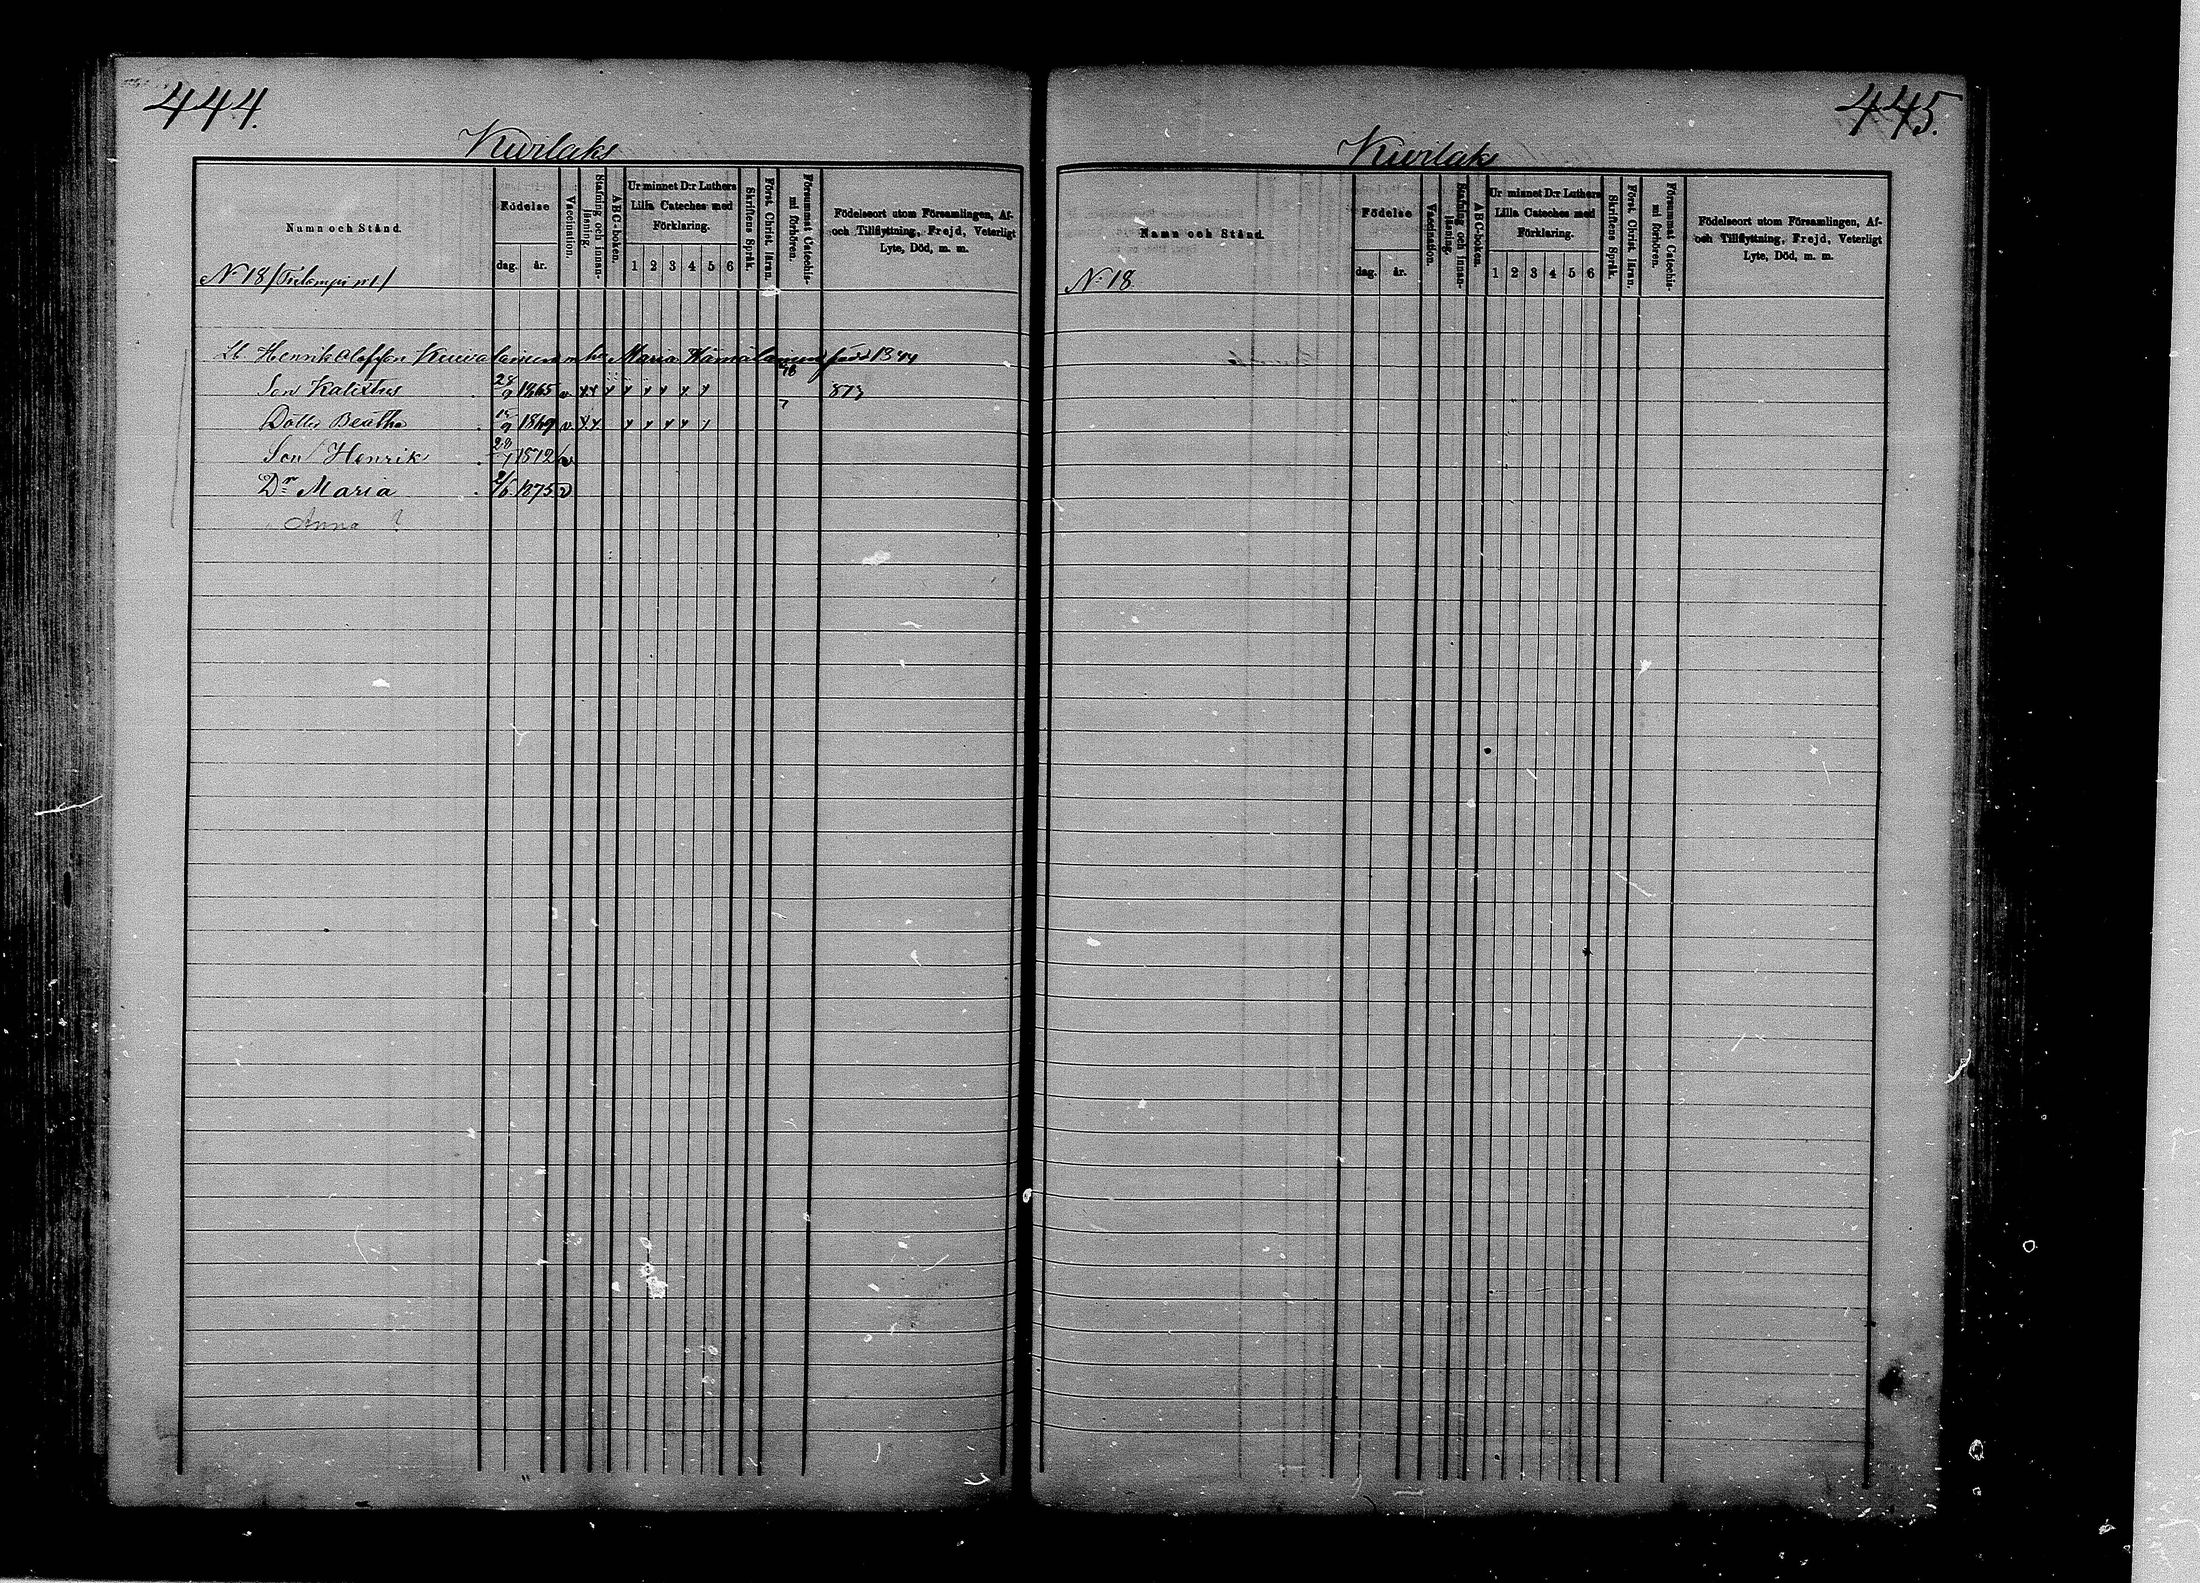 444.
Kurilaks
Namn och Stånd.
Födelse
dag. år.
Vaccination.
Stafning och innan-läsning.
ABC-boken.
Ur minnet D:r Luthers Lilla Cateches med Förklaring.
1 2 3 4 5 6
Skriftens Språk.
Först. Christ. läran.
Försummat Catechis-mi förhören.
Födelseort utom Församlingen, Af-
och Tillflyttning, Frejd, Veterligt
Lyte, Död, m. m.
No 18
Lb. Henrik Olofsson m hu Maria född 1844
Son Kalixtus 28/9 1865 v x x x x x x x x 873
Dotter Beatha 1869 v x x x x x x x
Son Henrik 28/1 1872 v
Dr Maria 2/6 1875 v
Anna ?
445.
Kurilaks
Namn och Stånd.
Födelse
dag. år.
Vaccination.
Stafning och innan-läsning.
ABC-boken.
Ur minnet D:r Luthers Lilla Cateches med Förklaring.
1 2 3 4 5 6
Skriftens Språk.
Först. Christ. läran.
Försummat Catechis-mi förhören.
Födelseort utom Församlingen, Af-
och Tillflyttning, Frejd, Veterligt
Lyte, Död, m. m.
No 18